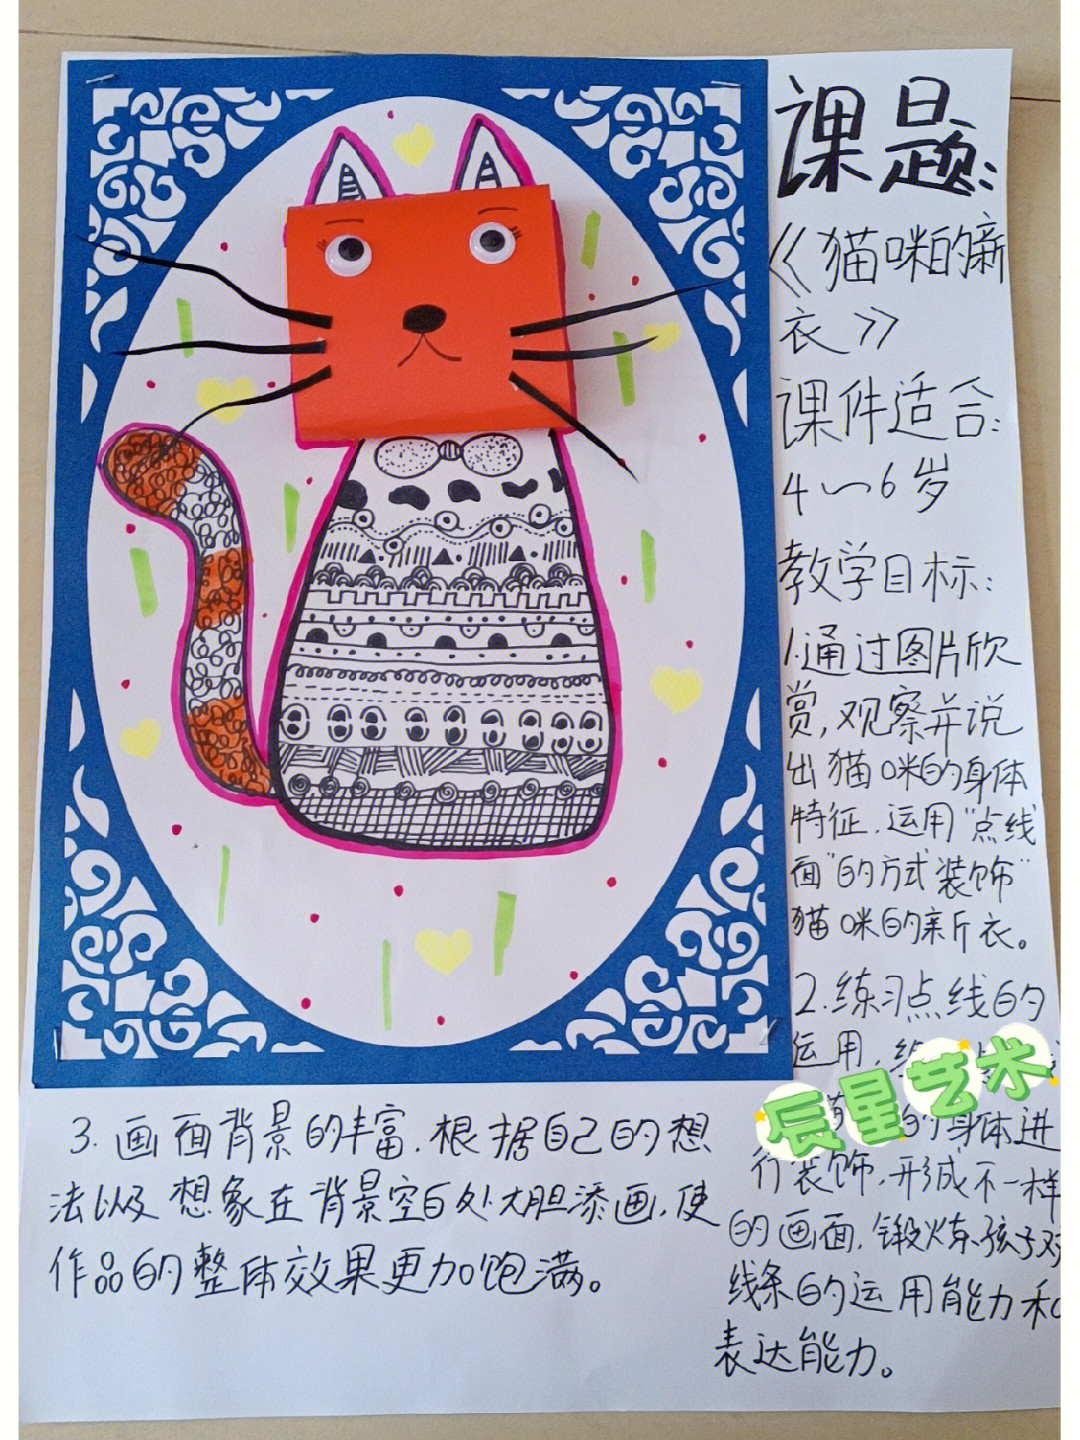 课题:
《猫咪的新
衣》
课件适合:
4—6岁
教学目标:
1.通过图片欣
赏,观察并说
出猫咪的身体
特征.运用"点线
面"的方式"装饰"
猫咪的新衣。
2.练习点线的
运用,
辰星艺术
的身体进
行装饰,形成不一样
的画面,锻炼孩子对
线条的运用能力和
表达能力。
3.画面背景的丰富.根据自己的想
法以及想象在背景空白处大胆添画,使
作品的整体效果更加饱满。